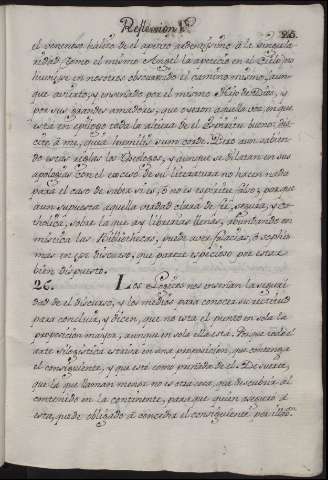 Reflexion 1ª. 26.
el venenoso halito de el apetito ardentissimo à la singula-
ridad, como el mismo Angel la apetecio en el Cielo, nos
hunde en nosotros obscurecido el camino mismo, aun-
que avierto, y enseñado por el mismo Hijo de Dios, y
por sus grandes amadores, que oyeron aquella voz, en que
està en epilogo toda la altura de el Espiritu bueno: dis-
cite à me, quia humilis sum corde. Pero aun sabien-
do estas reglas los Theologos, y aunque se dilatan en sus
apologias con el exceso de su literatura no hacen nada
para el caso de saber si es, ò no es espiritu falso; porque
aun supuesta aquella verdad clara de fee, segura, y ca-
tholica, sobre la que ay librerias llenas, abundando en
mistica las Bibliothecas, puede aver falacias, ò sophis-
mas en ese discurso, que parece especioso por estar
bien dispuesto.
26. Los Logicos nos enseñan la seguri-
dad de el discurso, y los medios para conocer su rectitud
para concluir, y dicen, que no està el punto en sola la
proposicion mayor, aunque en sola ella està. Porque todo el
arte silogistica estriva en una proposicion, que contenga
el consiguiente, y que està como preñada de el. De suerte,
que la que llaman menor no es otra cosa, que descubrir el
contenido en la continente, para que quien aseguró à
esta, quede obligado à conceder el consiguiente por ilacion.